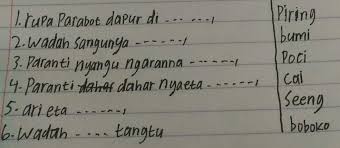 1. rupa Parabot dapur di ......., 
2. wadah sangunya ------,
3. Paranti nyangu ngaranna ------,
4. Paranti dahar nyaeta ------,
5. ari eta ------,
6. Wadah .... tangtu
Piring
bumi
Poci
cai
Seeng
boboko